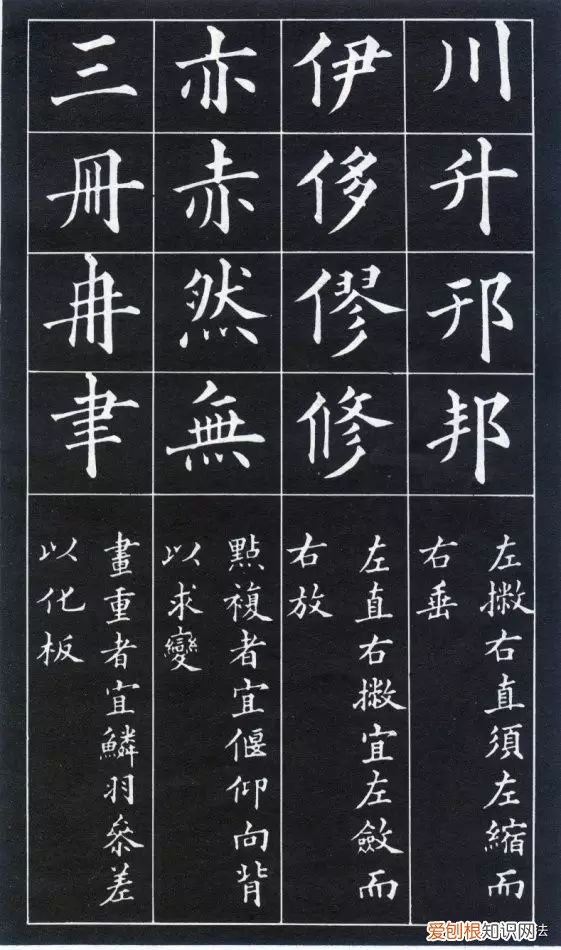 川升邗邦
左撇右直須左縮而
右垂
伊侈僇修
左直右撇宜左斂而
右放
亦赤然無
點複者宜偃仰向背
以求變
三冊冉聿
畫重者宜鱗羽參差
以化板
爱刨根知识网
法